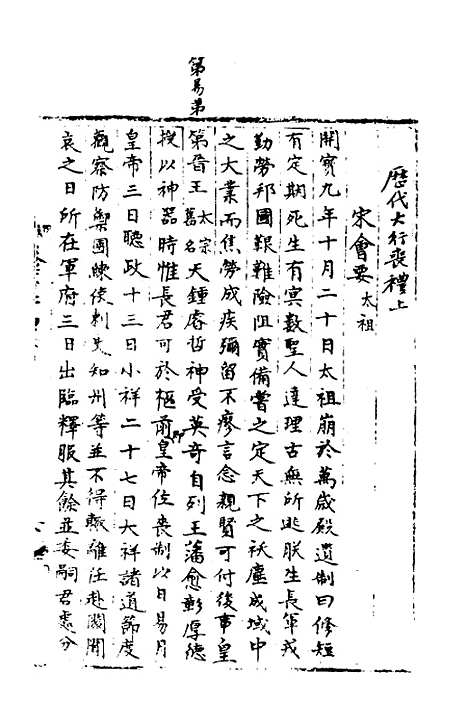 第易弟
歷代大行喪禮上
宋會要 太祖
開寶九年十月二十日太祖崩於萬歲殿遺制曰修短
有定期死生有冥數聖人達理古無所逃朕生長軍戎
勤勞邦國艱難險阻實備嘗之定天下之祅塵成域中
之大業而焦勞成疾彌留不瘳言念親賢可付後事皇
第晉王 太宗舊名 天鍾睿哲神受英奇自列王藩愈彰厚德
授以神器時惟長君可於柩前即皇帝位喪制以日易月
皇帝三日聽政十三日小祥二十七日大祥諸道節度
觀察防禦團練使刺史知州等並不得輒離任赴闕聞
哀之日所在軍府三日出臨釋服其餘並委嗣君處分